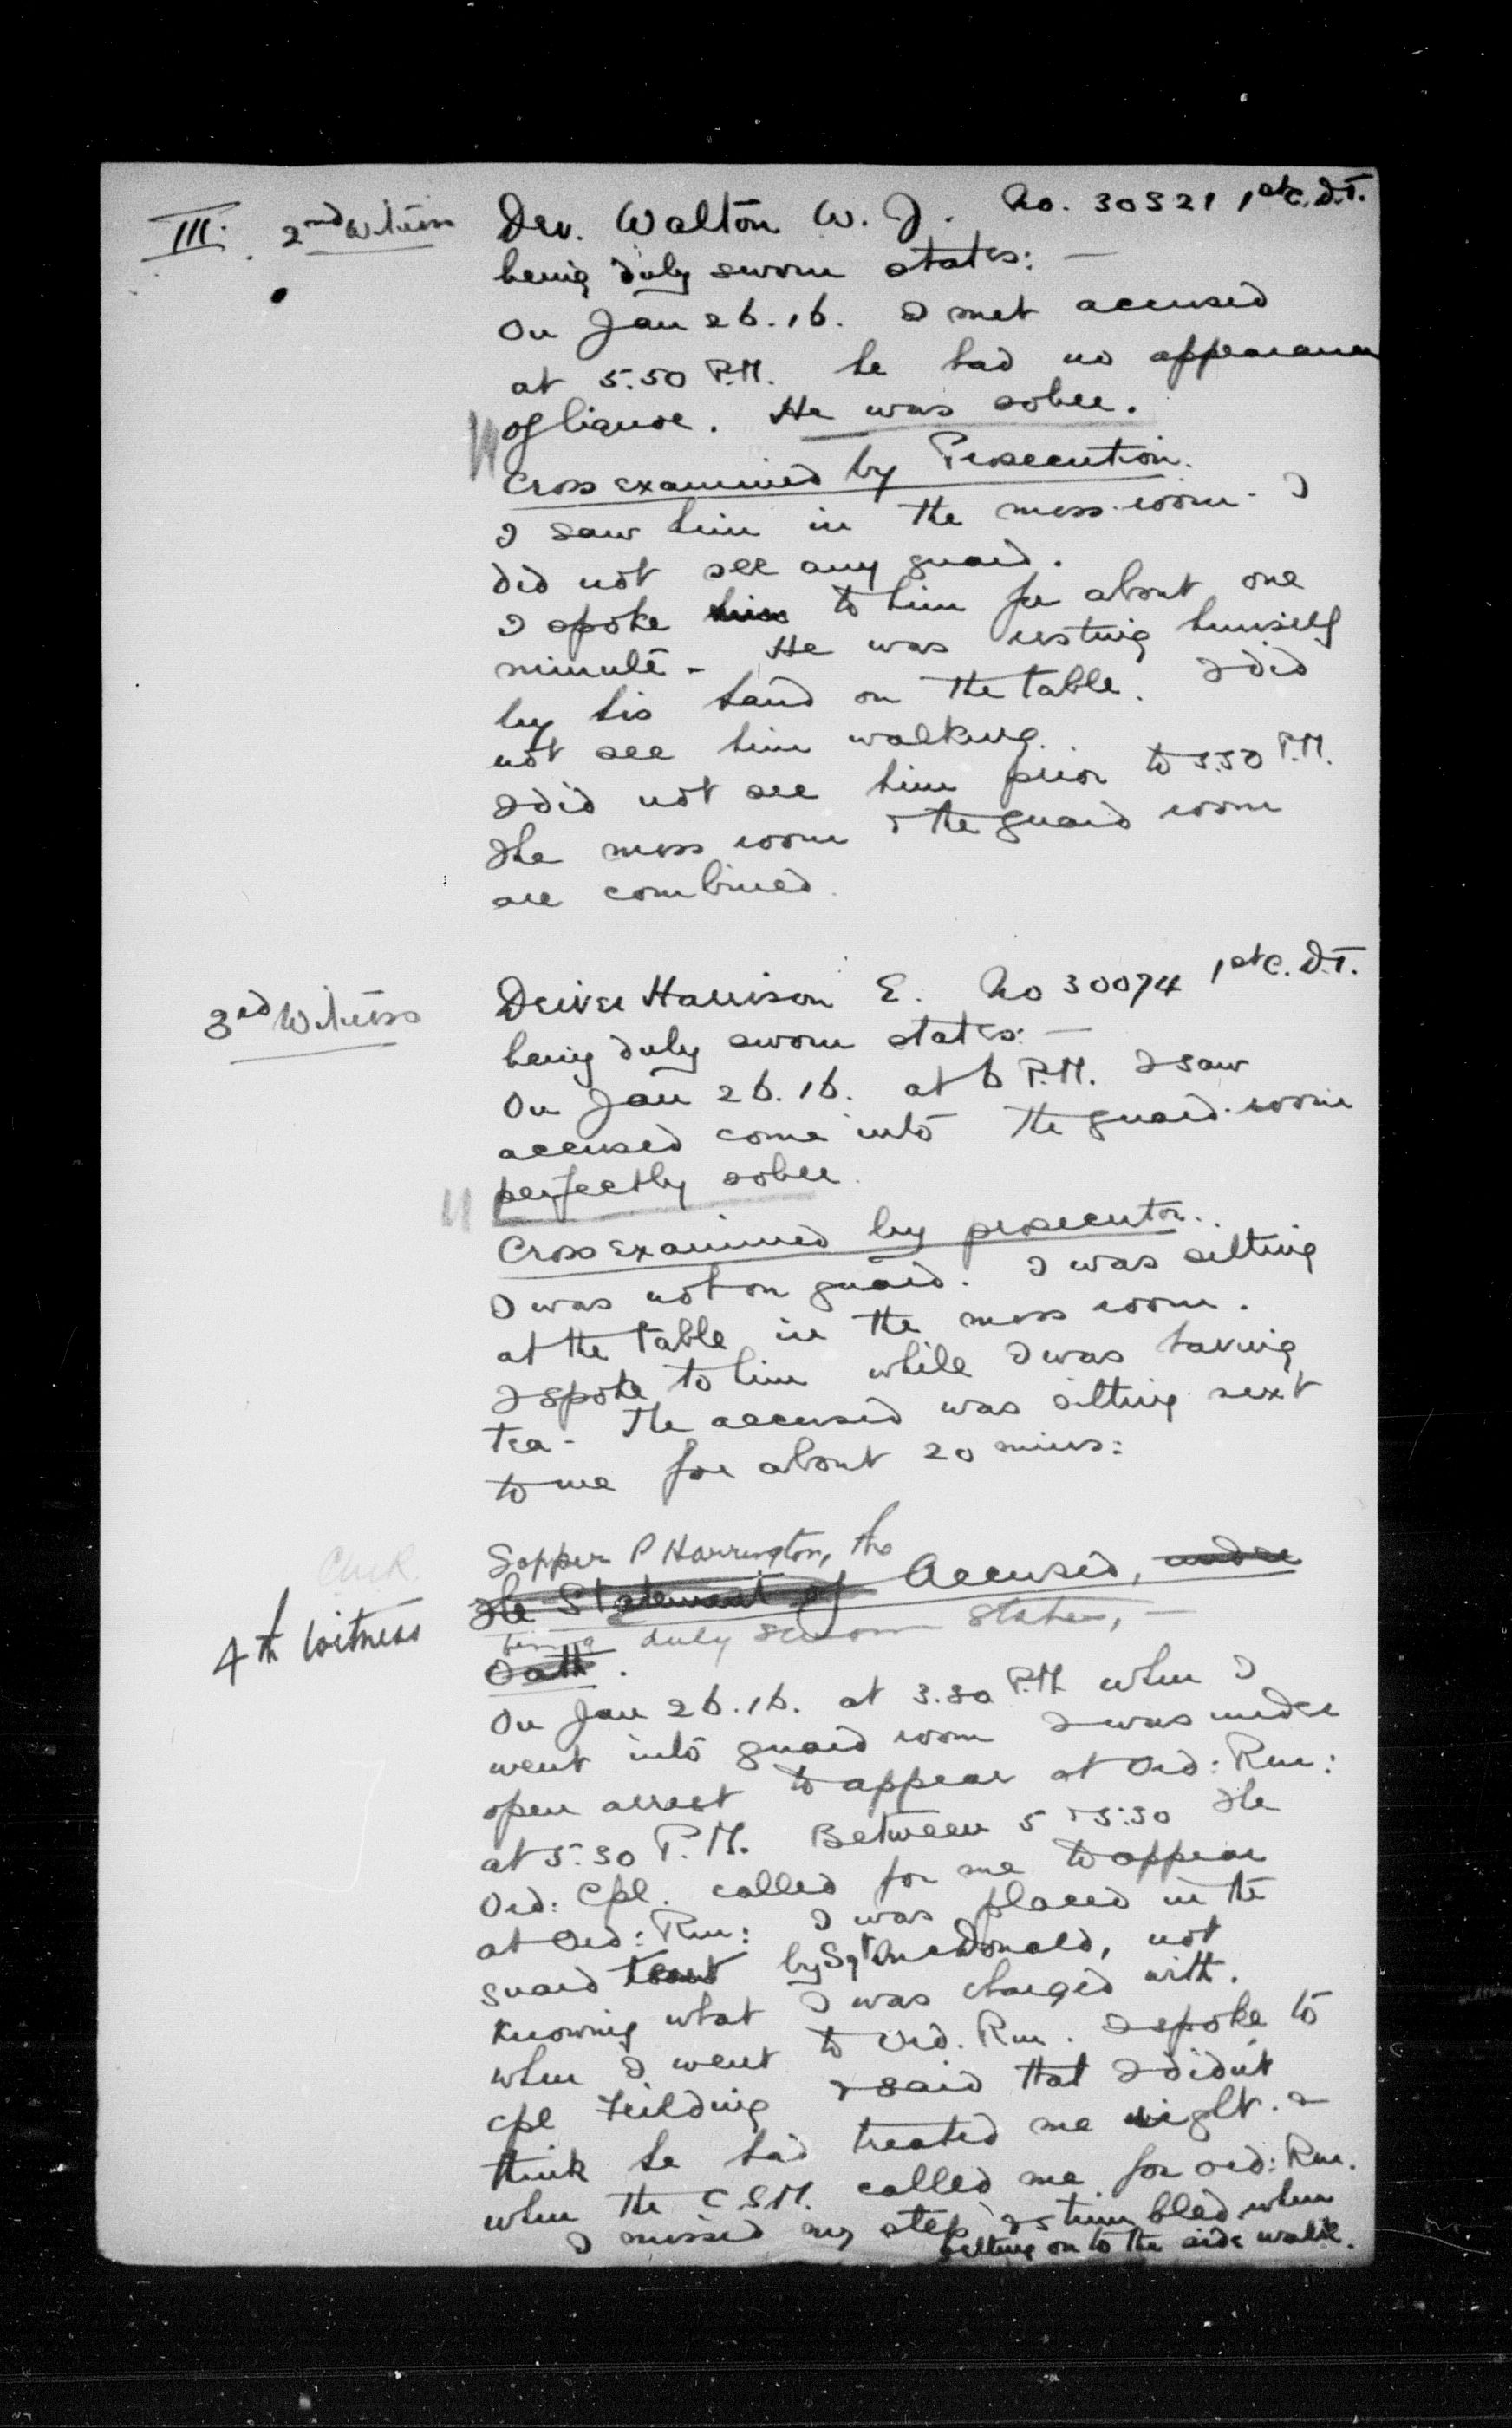 III. 2nd Witness Dvr. Walton W. J. No. 30521 1st C.D.T.
being duly sworn states: —
On Jan 26.16. I met accused
at 5.50 P.M. he had no appearance
of liquor. He was sober.
Cross examined by Prosecution.
I saw him in the mess-room. I
did not see any guard.
I spoke him to him for about one
minute - He was resting himself
by his hand on the table. I did
not see him walking.
I did not see him prior to 5.50 P.M.
The mess room & the guard room
are combined.
3rd Witness Driver Harrison E. No 30074 1st C.D.T.
being duly sworn states: —
On Jan 26.16. at 6 P.M. I saw
accused come into the guard-room
perfectly sober.
Cross examined by prosecutor.
I was not on guard. I was sitting
at the table in the mess room.
I spoke to him while I was having
tea - The accused was sitting next
to me for about 20 mins:
Sapper P Harrington, the
The Statement of Accused, under
4th Witness being duly sworn states, —
Oath.
On Jan 26.16. at 3.30 P.M. when I
went into guard room I was under
open arrest to appear at Ord: Rm:
at 5.30 P.M. Between 5 & 5.30 the
Ord: Cpl. called for me to appear
at Ord: Rm: I was placed in the
guard by Sgt MacDonald, not
knowing what I was charged with.
when I went to Ord. Rm. I spoke to
Cpl Feilding & said that I didn't
think he had treated me right. &
when the C.S.M. called me for Ord: Rm.
I missed my step & stumbled when
getting on to the side walk.